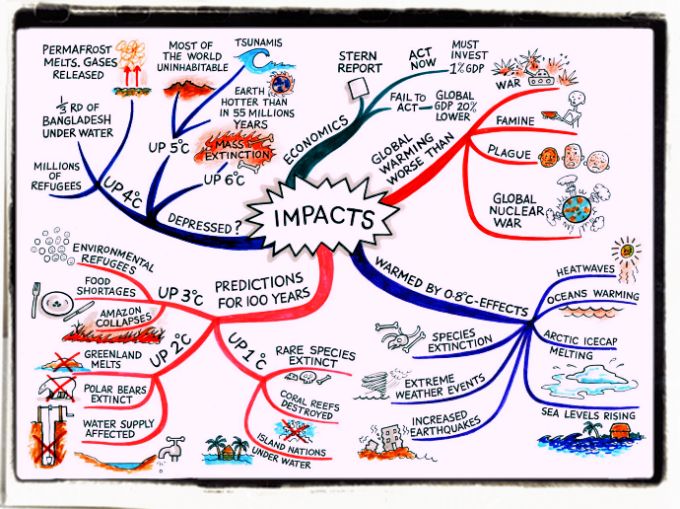 IMPACTS
ECONOMICS
STERN
REPORT
ACT
NOW
MUST
INVEST
1% GDP
FAIL TO
ACT
GLOBAL
GDP 20%
LOWER
GLOBAL
WARMING
WORSE THAN
WAR
FAMINE
PLAGUE
GLOBAL
NUCLEAR
WAR
WARMED BY 0.8°C-EFFECTS
HEATWAVES
OCEANS WARMING
ARCTIC ICECAP
MELTING
SEA LEVELS RISING
SPECIES
EXTINCTION
EXTREME
WEATHER EVENTS
INCREASED
EARTHQUAKES
PREDICTIONS
FOR 100 YEARS
UP 1°C
RARE SPECIES
EXTINCT
CORAL REEFS
DESTROYED
ISLAND NATIONS
UNDER WATER
UP 2°C
GREENLAND
MELTS
POLAR BEARS
EXTINCT
WATER SUPPLY
AFFECTED
UP 3°C
ENVIRONMENTAL
REFUGEES
FOOD
SHORTAGES
AMAZON
COLLAPSES
DEPRESSED?
UP 4°C
PERMAFROST
MELTS. GASES
RELEASED
1/3 RD OF
BANGLADESH
UNDER WATER
MILLIONS
OF
REFUGEES
UP 5°C
MOST OF
THE WORLD
UNINHABITABLE
TSUNAMIS
UP 6°C
EARTH
HOTTER THAN
IN 55 MILLIONS
YEARS
MASS
EXTINCTION